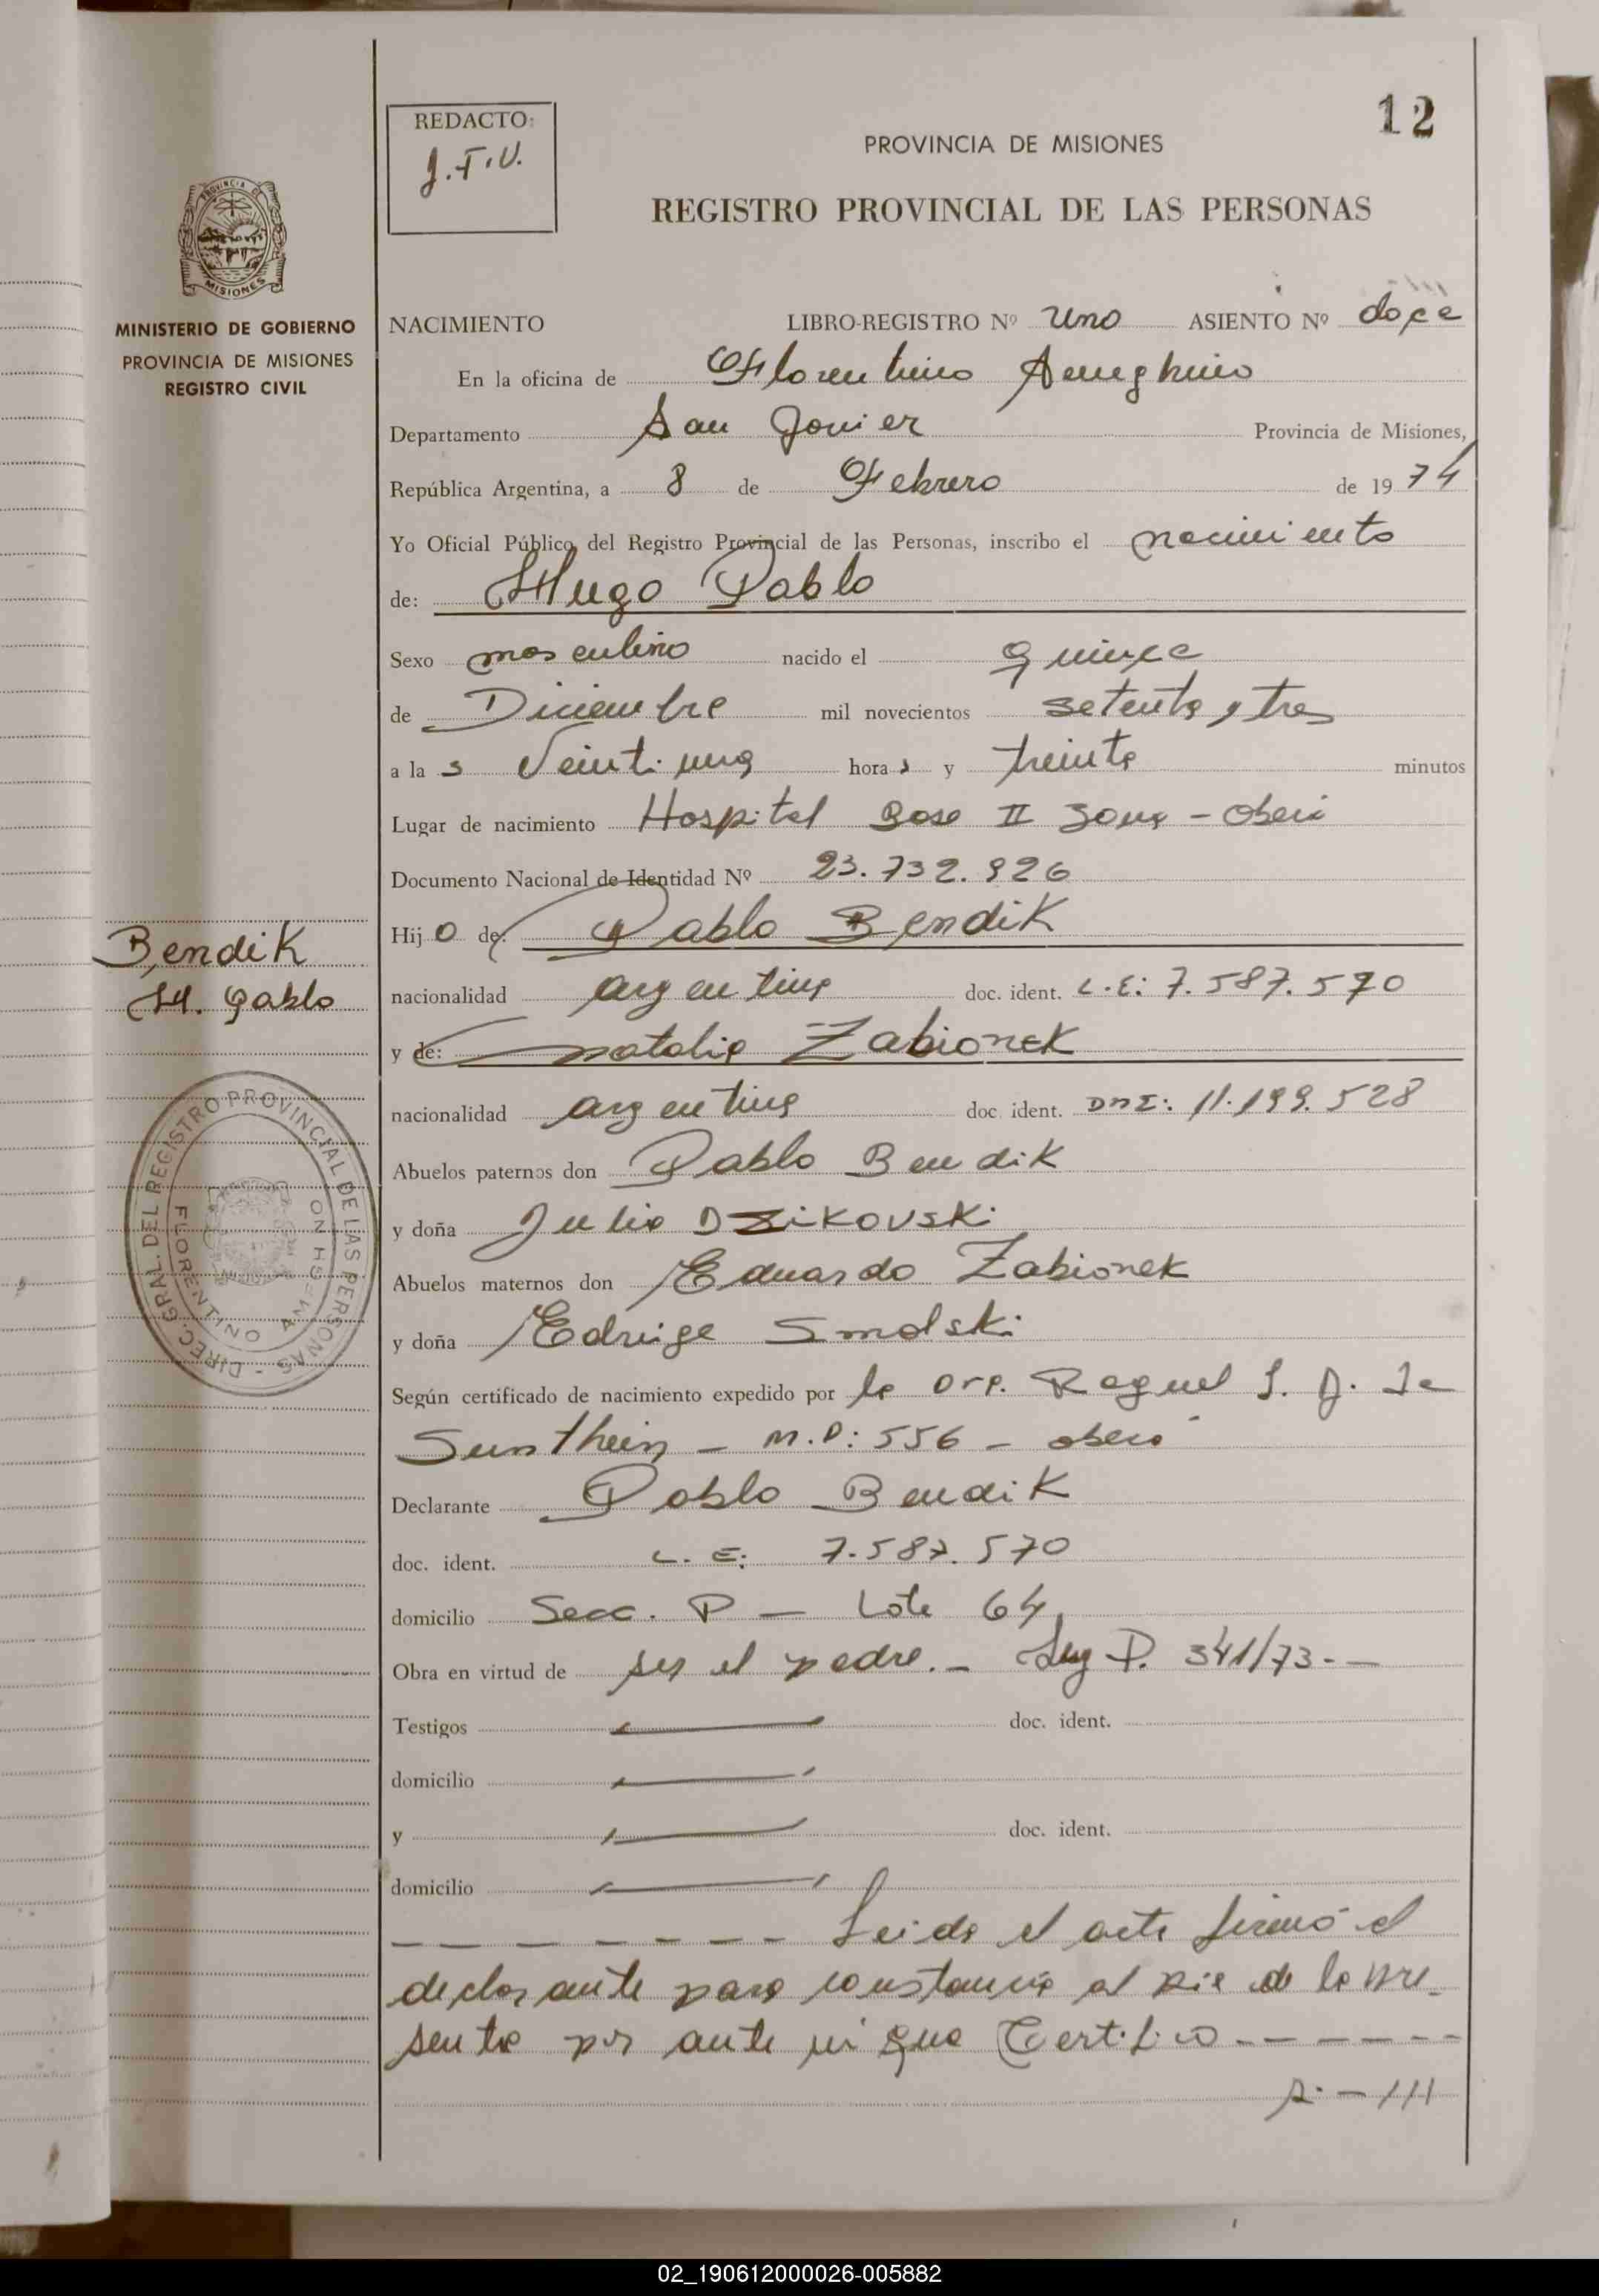 12
REDACTO:
J.F.V.
PROVINCIA DE MISIONES
REGISTRO PROVINCIAL DE LAS PERSONAS
PROVINCIA DE
MISIONES
MINISTERIO DE GOBIERNO
PROVINCIA DE MISIONES
REGISTRO CIVIL
NACIMIENTO LIBRO-REGISTRO Nº Uno ASIENTO Nº doce
En la oficina de Florentino Ameghino
Departamento San Javier Provincia de Misiones,
República Argentina, a 8 de Febrero de 19 74
Yo Oficial Público, del Registro Provincial de las Personas, inscribo el nacimiento
de: Hugo Pablo
Sexo masculino nacido el quince
de Diciembre mil novecientos setenta y tres
a la s Veintiuna hora s y treinta minutos
Lugar de nacimiento Hospital Base II Zona - Oberá
Documento Nacional de Identidad Nº 23.732.926
Hij o de: Pablo Bendik
Bendik
H. Pablo
nacionalidad argentina doc. ident. L.E: 7.587.570
y de: natalia Zabionek
nacionalidad argentina doc. ident. DNI: 11.199.528
Abuelos paternos don Pablo Bendik
y doña Julia Dzikovski
Abuelos maternos don Eduardo Zabionek
y doña Edvige Smolski
DIREC. GRAL. DEL REGISTRO PROVINCIAL DE LAS PERSONAS -
FLORENTINO AMEGHINO
Según certificado de nacimiento expedido por la Dra. Raquel S. J. de
Sunthein - M.P: 556 - Oberá
Declarante Pablo Bendik
doc. ident. L. E: 7.587.570
domicilio Secc. P - Lote 64
Obra en virtud de ser el padre. - Leg P. 341/73. -
Testigos doc. ident.
domicilio
y doc. ident.
domicilio
Leida el acta firmó el
declarante para constancia al pie de la pre-
sente por ante mi que Certifico
///
02_190612000026-005882